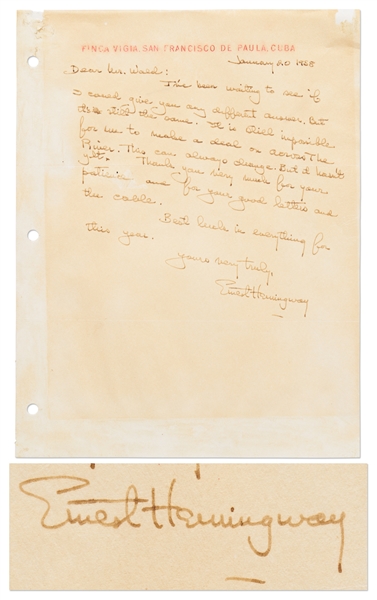 FINCA VIGIA, SAN FRANCISCO DE PAULA, CUBA
January 20 1958
Dear Mr. Wald:
I've been waiting to see if
I could give you any different answer. But
it's still the same. It is still impossible
for me to make a deal on Across The
River. This can always change. But it hasn't
yet. Thank you very much for your
patience and for your good letters and
the cable.
Best luck in everything for
this year.
yours very truly,
Ernest Hemingway
Ernest Hemingway